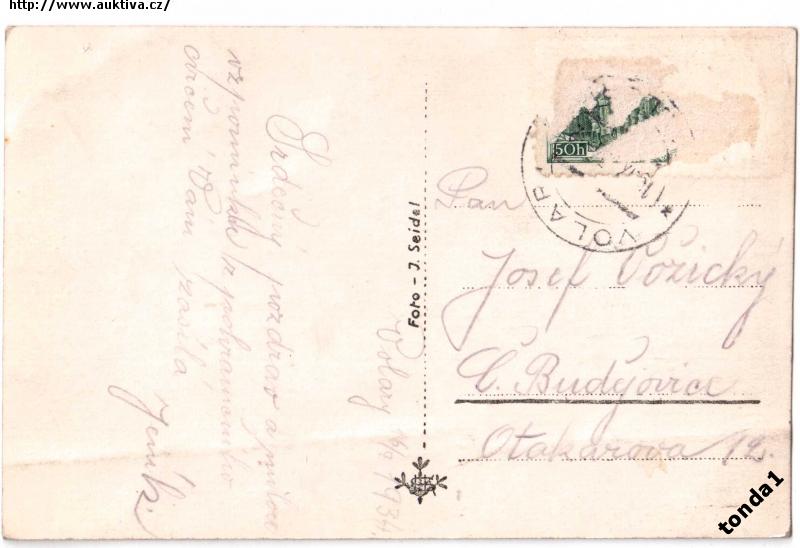 http://www.auktiva.cz/
Srdečný pozdrav a milou
vzpomínku z pohraničního
cvičení Vám zasílá
Jeník.
Volary 1934.
Foto - J. Seidel
50h
VOLARY
Pan
Josef Požický
Č. Budějovice
Otakarova 12.
tonda1